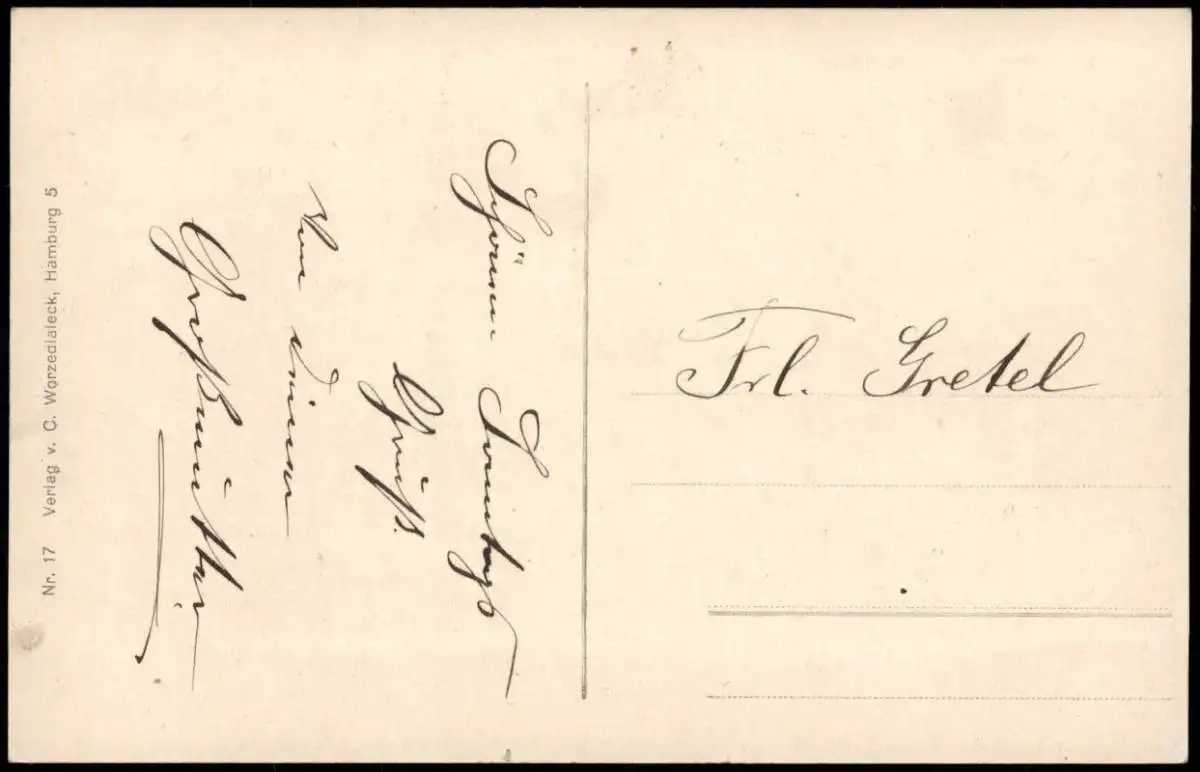 Schönen Sonntags
Gruß.
Von Deiner
Großmutter
Frl. Gretel
Nr. 17 Verlag v. C. Worzedialeck, Hamburg 5